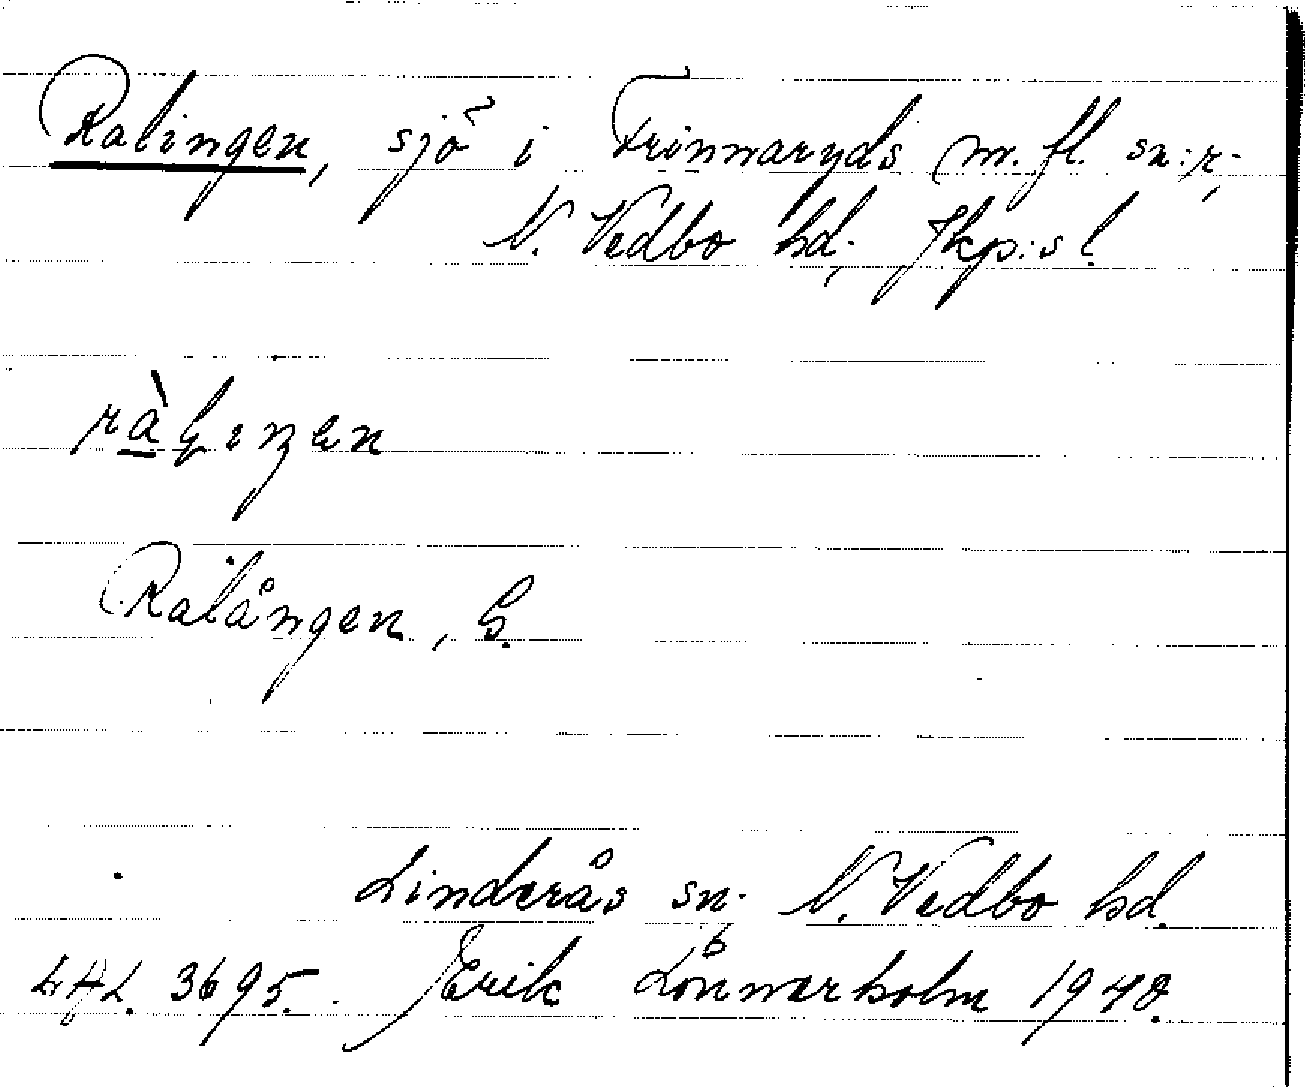 Ralingen, sjö i Frinnaryds m. fl. sn:r,
N. Vedbo hd, Jkp:s l.
Ralången, G.
Linderås sn. N. Vedbo hd.
LAL. 3695. Erik Lönnerholm 1940.